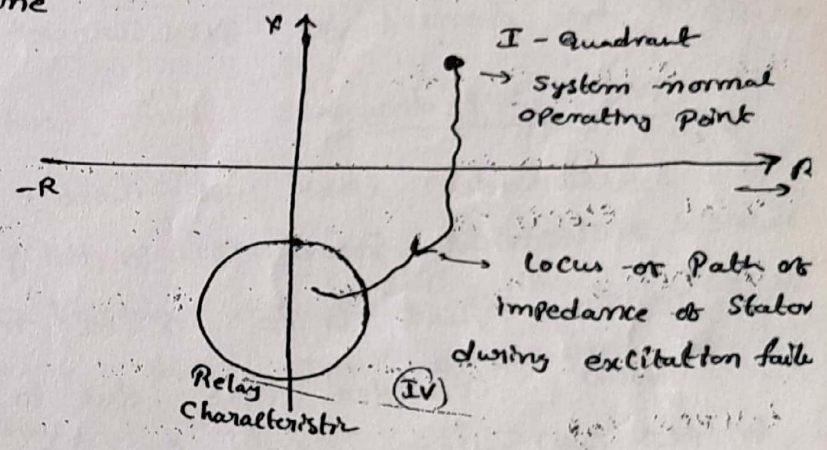 X
I - Quadrant
System normal
operating point
-R
R
Locus or Path of
impedance of Stator
during excitation faile
Relay
Characteristic
IV